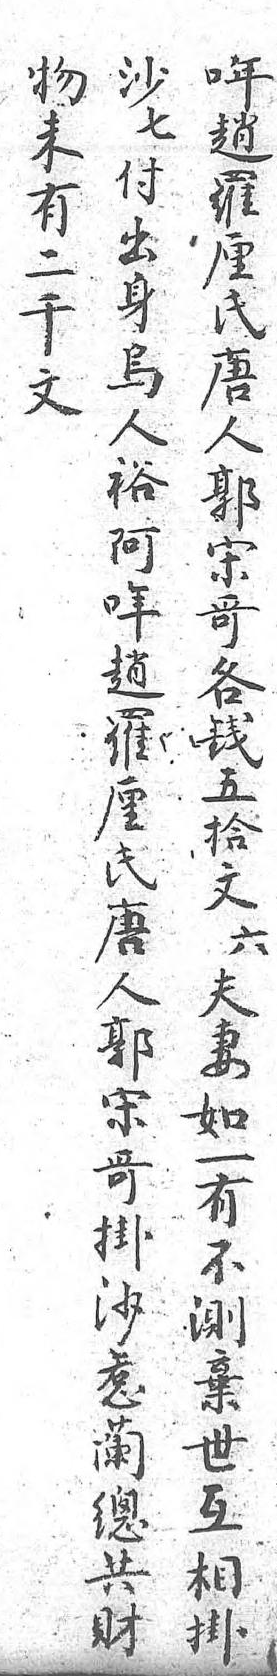 哖趙羅厘氏唐人郭宋哥各錢五拾文六夫妻如一有不測棄世互相掛
沙七付出身烏人裕阿哖趙羅厘氏唐人郭宋哥掛沙惹蘭總共財
物未有二千文